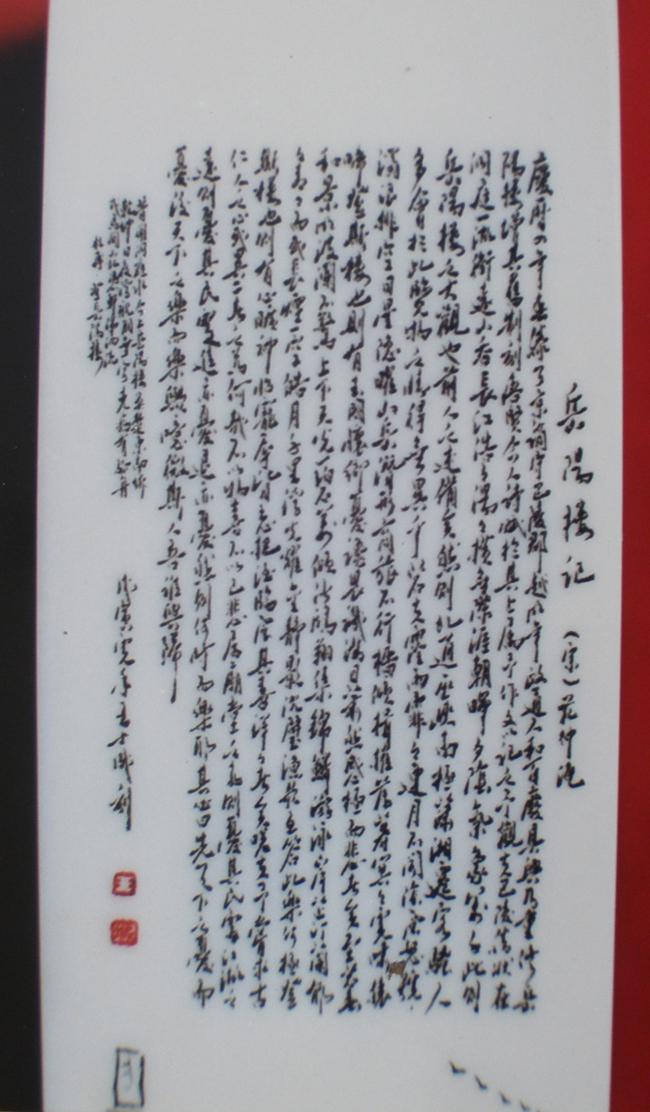 岳陽樓记 （宋）范仲淹
慶曆四年春滕子京謫守巴陵郡越明年政通人和百廢具興乃重修岳
陽樓增其舊制刻唐賢今人詩賦於其上属予作文以記之予觀夫巴陵勝狀在
洞庭一湖銜遠山吞長江浩浩湯湯橫無際涯朝暉夕陰氣象萬千此則
岳陽樓之大觀也前人之述備矣然則北通巫峽南極瀟湘遷客騷人
多會於此覽物之情得無異乎若夫霪雨霏霏連月不開陰風怒號
濁浪排空日星隱曜山岳潛形商旅不行檣傾楫摧薄暮冥冥虎嘯猿
啼登斯樓也則有去國懷鄉憂讒畏譏滿目蕭然感極而悲者矣至若春
和景明波瀾不驚上下天光一碧万頃沙鷗翔集錦鱗游泳岸芷汀蘭郁
郁青青而或長煙一空皓月千里浮光耀金静影沉璧漁歌互答此樂何極登
斯樓也則有心曠神怡寵辱皆忘把酒臨風其喜洋洋者矣嗟夫予嘗求古
仁人之心或異二者之為何哉不以物喜不以己悲居廟堂之高則憂其民處江湖之
遠則憂其君是進亦憂退亦憂然則何時而樂耶其必曰先天下之憂而
憂後天下之樂而樂與噫微斯人吾誰與歸
昔聞洞庭水今上岳陽樓吳楚東南坼
乾坤日夜浮親朋無一字老病有孤舟
戎馬關山北憑軒涕泗流
杜甫 登岳陽樓
戊寅